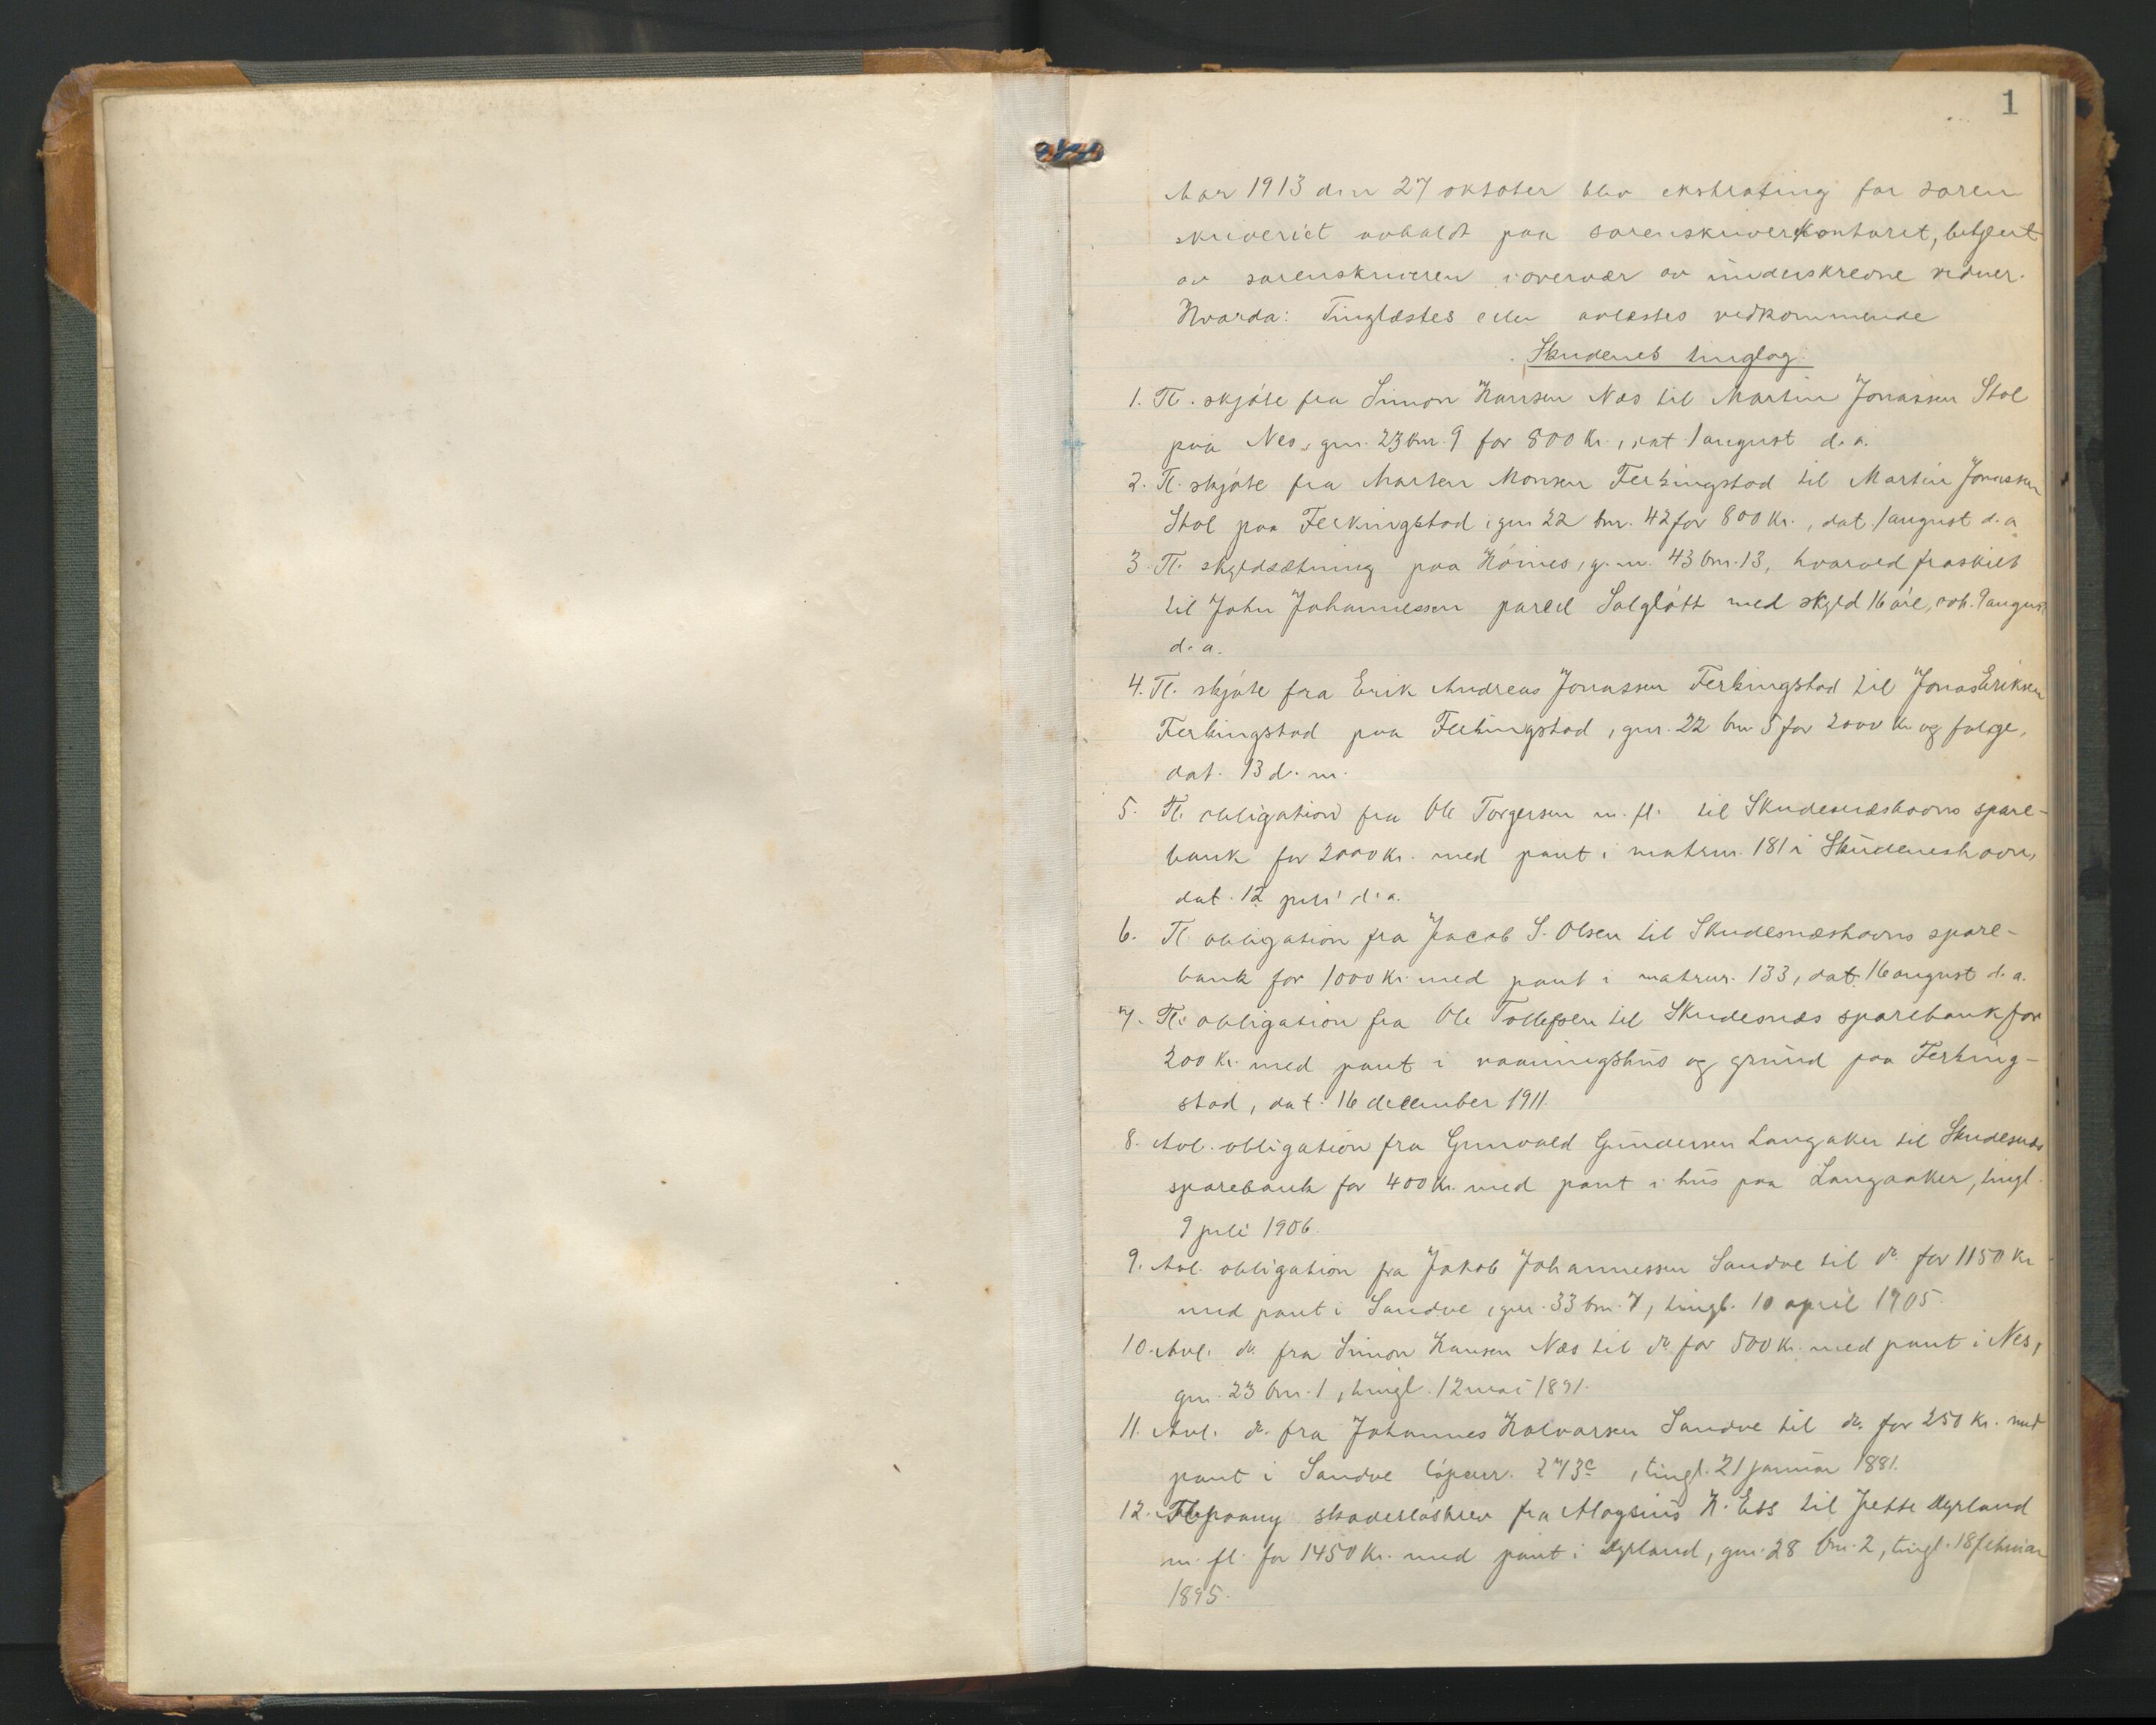 1
Aar 1913 den 27 oktober blev ekstrating for soren
skriveriet avholdt paa sorenskriverkontoret, betjent
av sorenskriveren i overvær av underskrevne vidner.
Hvorda: Tinglæstes eller avlæstes vedkommende
Skudenes tinglag.
1. Tl. skjöte fra Simon Hansen Næs til Martin Jonassen Stol
paa Nes, gnr. 23 bnr. 9 for 800 Kr., dat. 1 august d. a.
2. Tl. skjöte fra Morten Monsen Ferkingstad til Martin Jonassen
Stol paa Ferkingstad, gnr 22 bnr. 42 for 800 Kr., dat. 1 august d. a
3. Tl. skyldsætning paa Höines, g. nr. 43 bnr. 13, hvorved fraskilt
til John Johannessen parcel Solglött med skyld 16 öre, avh. 9 august
d. a.
4. Tl. skjöte fra Erik Andreas Jonassen Ferkingstad til Jonas Eriksen
Ferkingstad paa Ferkingstad, gnr. 22 bnr 5 for 2000 Kr og folge,
dat. 13 d. m.
5. Tl. obligation fra Ole Torgersen m. fl. til Skudesnæshavns spare-
bank for 2000 Kr. med pant i matrnr. 181 i Skudeneshavn,
dat. 12 juli d. a.
6. Tl. obligation fra Jacob S. Olsen til Skudesnæshavns spare-
bank for 1000 Kr. med pant i matrnr. 133, dat. 16 august d. a.
7. Tl. obligation fra Ole Tollefsen til Skudesnæs sparebank for
200 Kr. med pant i vaaningshus og grund paa Ferking-
stad, dat. 16 december 1911.
8. Avl. obligation fra Grunvald Gundersen Langaker til Skudesnæs
sparebank for 400 Kr. med pant i hus paa Langaaker, tingl.
9 juli 1906.
9. Avl. obligation fra Jakob Johannessen Sandve til do. for 1150 Kr
med pant i Sandve, gnr. 33 bnr. 7, tingl. 10 april 1905.
10. Avl. do. fra Simon Hansen Næs til do. for 500 Kr. med pant i Nes,
gnr. 23 bnr. 1, tingl. 12 mai 1891.
11. Avl. do. fra Johannes Halvorsen Sandve til do. for 250 Kr. med
pant i Sandve löpenr. 273c, tingl. 21 januar 1881.
12. skadeslösbrev fra Aloysius H. Ebs til Jette Dyrland
m. fl. for 1450 Kr. med pant i Dyrland, gnr. 28 bnr. 2, tingl. 18 februar
1895.